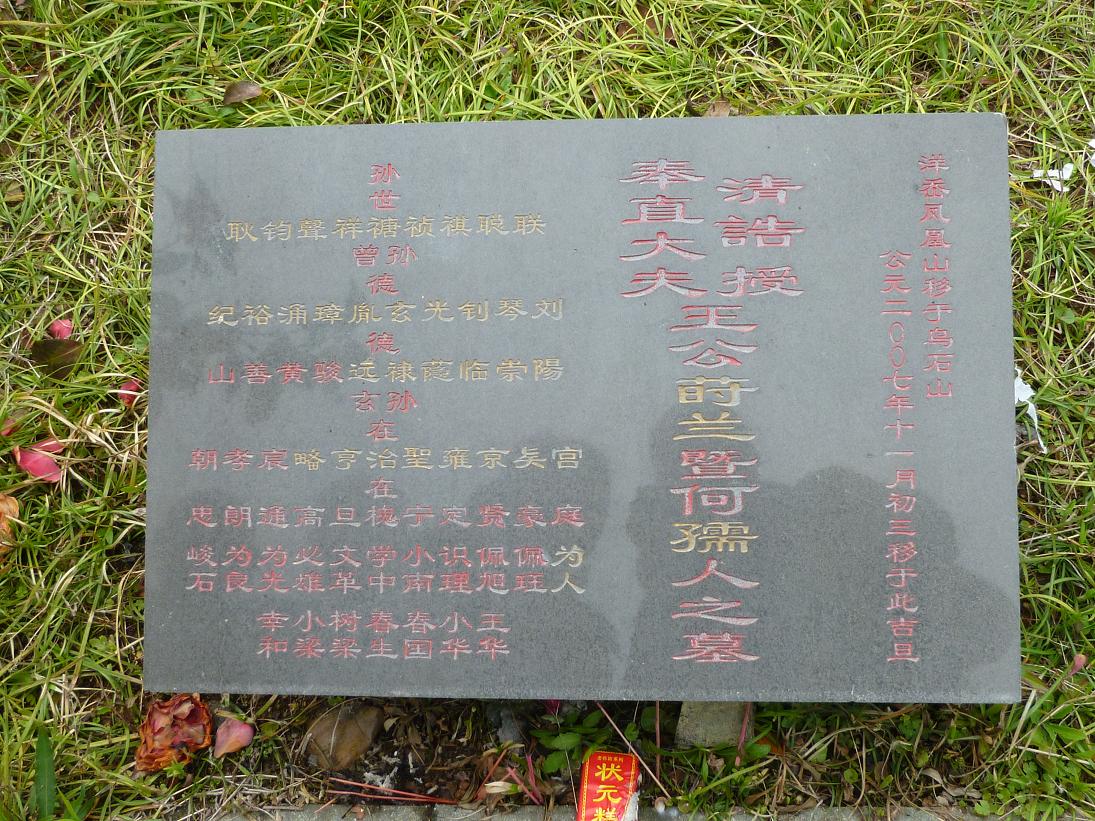 洋岙凤凰山移于乌石山
公元二00七年十一月初三移于此吉旦
清誥授
奉直大夫
王公莳兰暨何孺人之墓
孙世
联聪祺祯禟祥聲钧耿
曾孙
德
刘琴钊光玄胤璋涌裕纪
德
陽崇临禄远骏黄善山
玄孙
在
宫京雍聖治亨宸孝朝
在
庭豪贤定宁槐旦高通朗忠
为人 佩珏 佩旭 识理 小南 学中 文革 必雄 为光 为良 峻石
王华 小华 春国 春生 树梁 小梁 幸和
状元糕